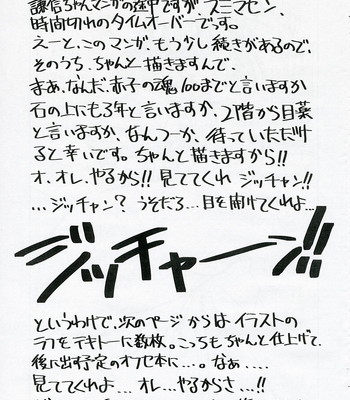 謙信ちゃんマンガの途中ですが スミマセン、
時間切れのタイムオーバーです。
えーと、このマンガ、もう少し続きがあるので、
そのうち、ちゃんと描きますんで、
まあ、なんだ、赤子の魂100までと言いますか
石の上にも3年と言いますか、2階から目薬
と言いますか、なんつーか、待っていただけ
ると幸いです。ちゃんと描きますから!!
オ、オレ、やるから!! 見ててくれ ジッチャン!!
…ジッチャン? うそだろ…目を開けてくれよ…
ジッチャーン!!
というわけで、次のページからは イラストの
ラフをテキトーに数枚。こっちもちゃんと仕上げて、
後に出す予定のオフセ本に…。なぁ…。
見ててくれよ… オレ…やるからさ…!!